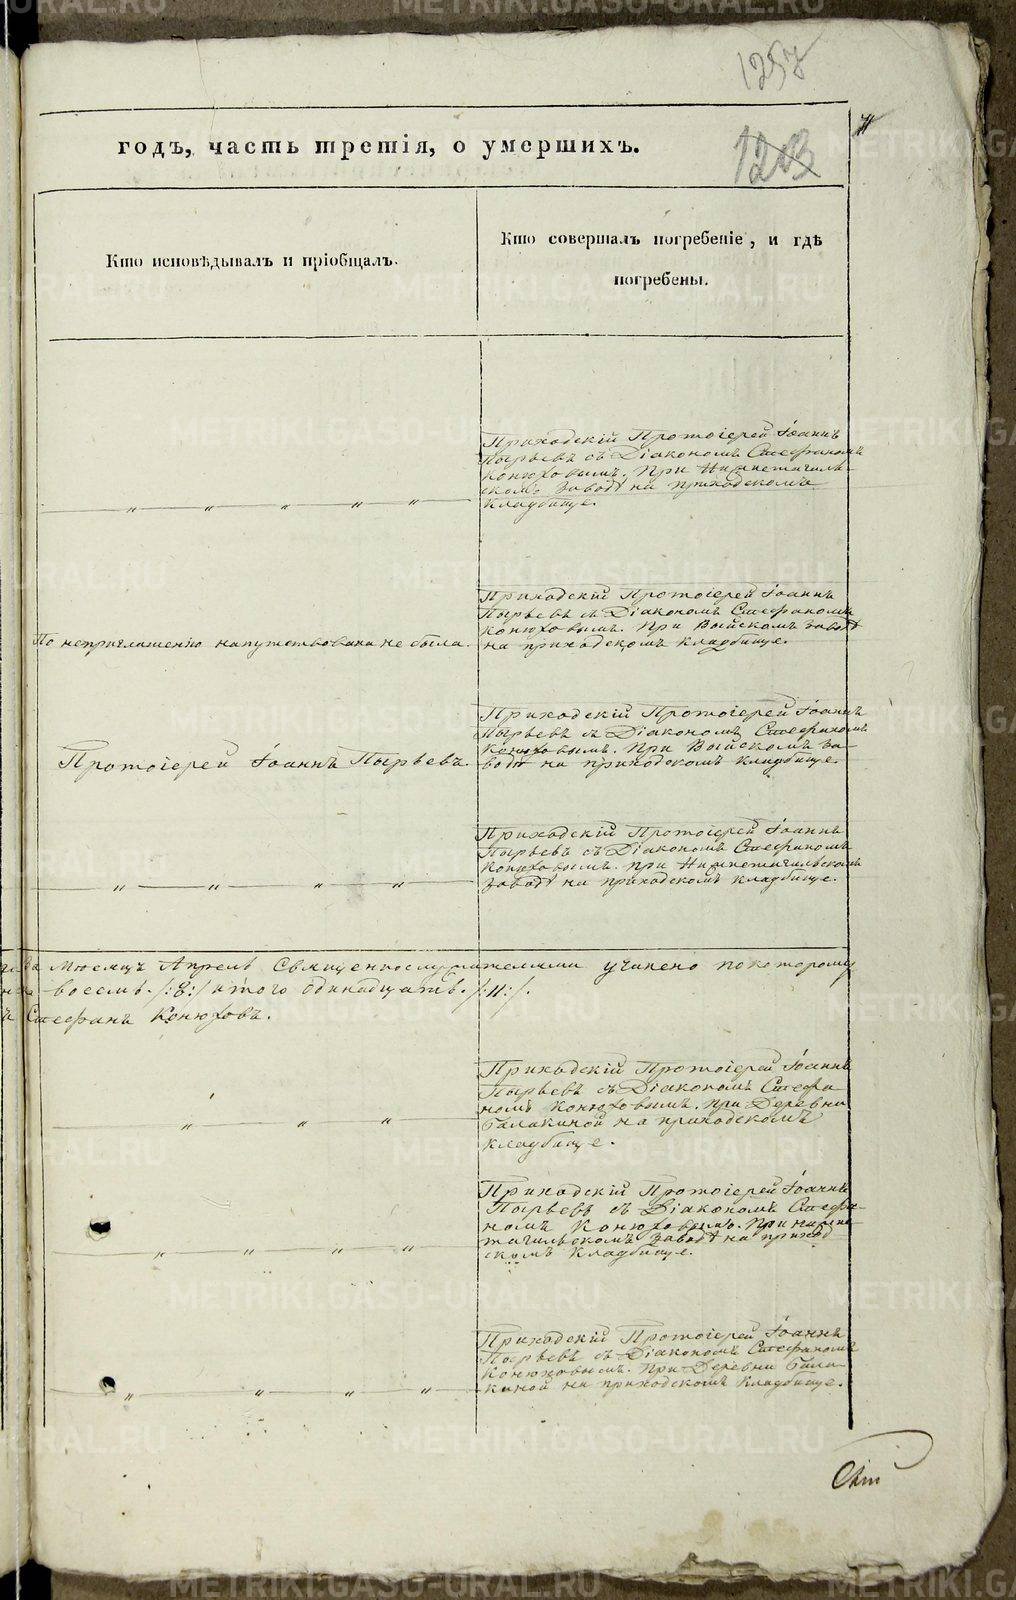 1257
годъ, часть третія, о умершихъ.
1203
Кто исповѣдывалъ и пріобщалъ.
Кто совершалъ погребеніе, и гдѣ
погребены.
Приходскій Протоіерей Іоаннъ
Пырьевъ съ Діакономъ Стефаномъ
Конюховымъ. При Нижнетагиль-
скомъ заводѣ на приходскомъ
кладбище.
По неприглашенію напутствована не была.
Приходскій Протоіерей Іоаннъ
Пырьевъ съ Діакономъ Стефаномъ
Конюховымъ. При Выйскомъ заводѣ
на приходскомъ кладбище.
Протоіерей Іоаннъ Пырьевъ.
Приходскій Протоіерей Іоаннъ
Пырьевъ съ Діакономъ Стефаномъ
Конюховымъ. При Выйскомъ за-
водѣ на приходскомъ кладбище.
Приходскій Протоіерей Іоаннъ
Пырьевъ съ Діакономъ Стефаномъ
Конюховымъ. при Нижнетагильскомъ
заводѣ на приходскомъ кладбище.
Мѣсяцъ Апрель Священнослужителями учинено по которому
восемь. /:8:/ итого одинадцать. /:11:/.
Стефанъ Конюховъ.
Приходскій Протоіерей Іоаннъ
Пырьевъ съ Діакономъ Стефа-
номъ Конюховымъ. при Деревни
Балакиной на приходскомъ
кладбище.
Приходскій Протоіерей Іоаннъ
Пырьевъ съ Діакономъ Стефа-
номъ Конюховымъ. При нижне-
тагильскомъ заводѣ на приход-
скомъ кладбище.
Приходскій Протоіерей Іоаннъ
Пырьевъ съ Діакономъ Стефаномъ
Конюховымъ. при Деревни Бала-
киной на приходскомъ кладбище.
METRIKI.GASO-URAL.RU